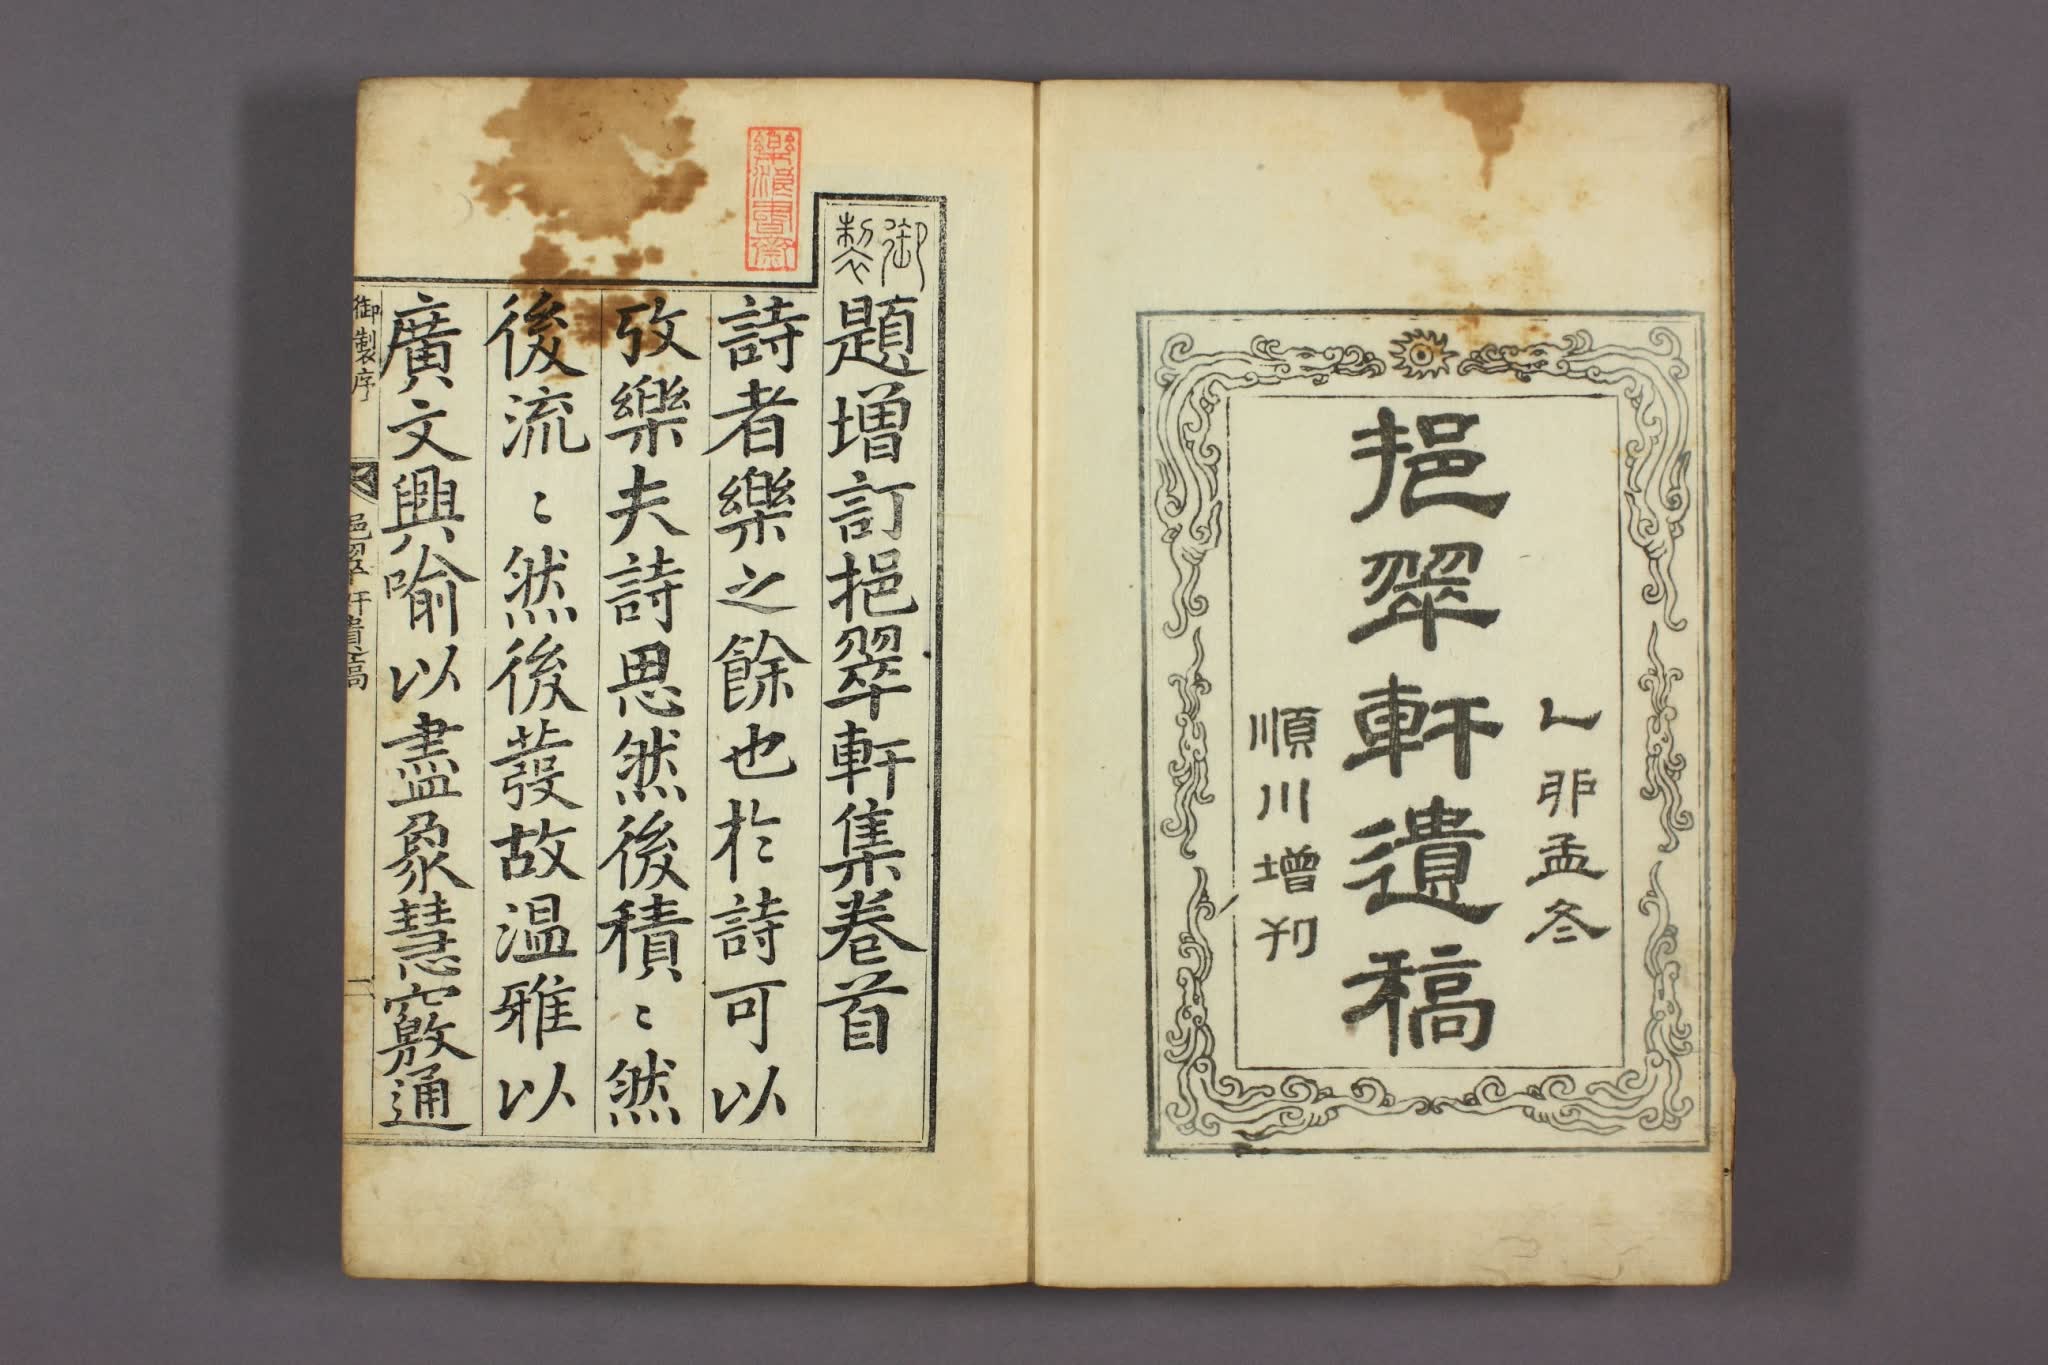 乙卯孟冬
挹翠軒遺稿
順川增刊
御製
題增訂挹翠軒集卷首
詩者樂之餘也於詩可以
攷樂夫詩思然後積〻然
後流〻然後發故温雅以
廣文興喻以盡象慧竅通
御製序
挹翠軒遺稿
一